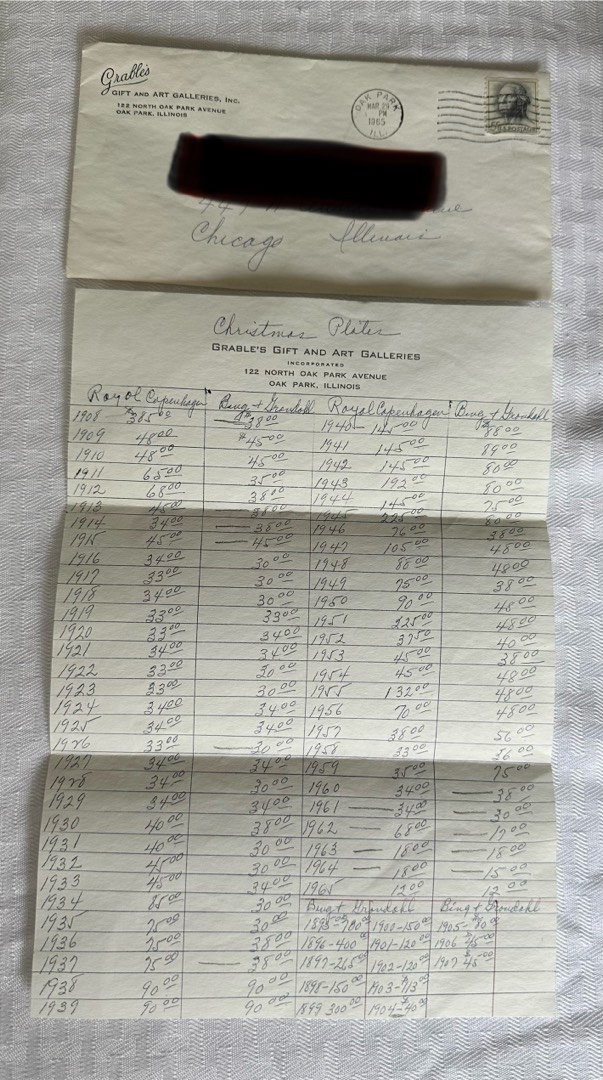 Grable's
GIFT AND ART GALLERIES, INC.
122 NORTH OAK PARK AVENUE
OAK PARK, ILLINOIS
OAK PARK
MAR 29
PM
1965
ILL.
Chicago Illinois
Christmas Plates
GRABLE'S GIFT AND ART GALLERIES
INCORPORATED
122 NORTH OAK PARK AVENUE
OAK PARK, ILLINOIS
Royal Copenhagen Bing + Grondahl Royal Copenhagen Bing + Grondahl
1908 $385.00 — $38.00 1940 — 145.00 $88.00
1909 48.00 $45.00 1941 145.00 89.00
1910 48.00 45.00 1942 145.00 80.00
1911 65.00 35.00 1943 192.00 80.00
1912 68.00 38.00 1944 145.00 75.00
1913 45.00 — 38.00 1945 225.00 80.00
1914 34.00 — 38.00 1946 76.00 38.00
1915 45.00 — 45.00 1947 105.00 48.00
1916 34.00 30.00 1948 88.00 48.00
1917 33.00 30.00 1949 75.00 38.00
1918 34.00 30.00 1950 90.00 48.00
1919 33.00 33.00 1951 225.00 48.00
1920 33.00 34.00 1952 37.50 40.00
1921 34.00 34.00 1953 45.00 38.00
1922 33.00 30.00 1954 45.00 48.00
1923 33.00 30.00 1955 132.00 48.00
1924 34.00 34.00 1956 70.00 48.00
1925 34.00 34.00 1957 38.00 56.00
1926 33.00 — 30.00 1958 33.00 36.00
1927 34.00 34.00 1959 35.00 75.00
1928 34.00 30.00 1960 34.00 — 38.00
1929 34.00 34.00 1961 — 34.00 — 30.00
1930 40.00 38.00 1962 — 68.00 — 17.00
1931 40.00 30.00 1963 — 18.00 — 18.00
1932 45.00 30.00 1964 — 18.00 — 15.00
1933 45.00 34.00 1965 12.00 12.00
1934 85.00 30.00 Bing + Grondahl Bing + Grondahl
1935 75.00 30.00 1895-700.00 1900-150.00 1905-80.00
1936 75.00 38.00 1896-400.00 1901-120.00 1906 $45.00
1937 75.00 — 38.00 1897-265.00 1902-120.00 1907 $45.00
1938 90.00 90.00 1898-150.00 1903-
1939 90.00 90.00 1899 300.00 1904-$40.00